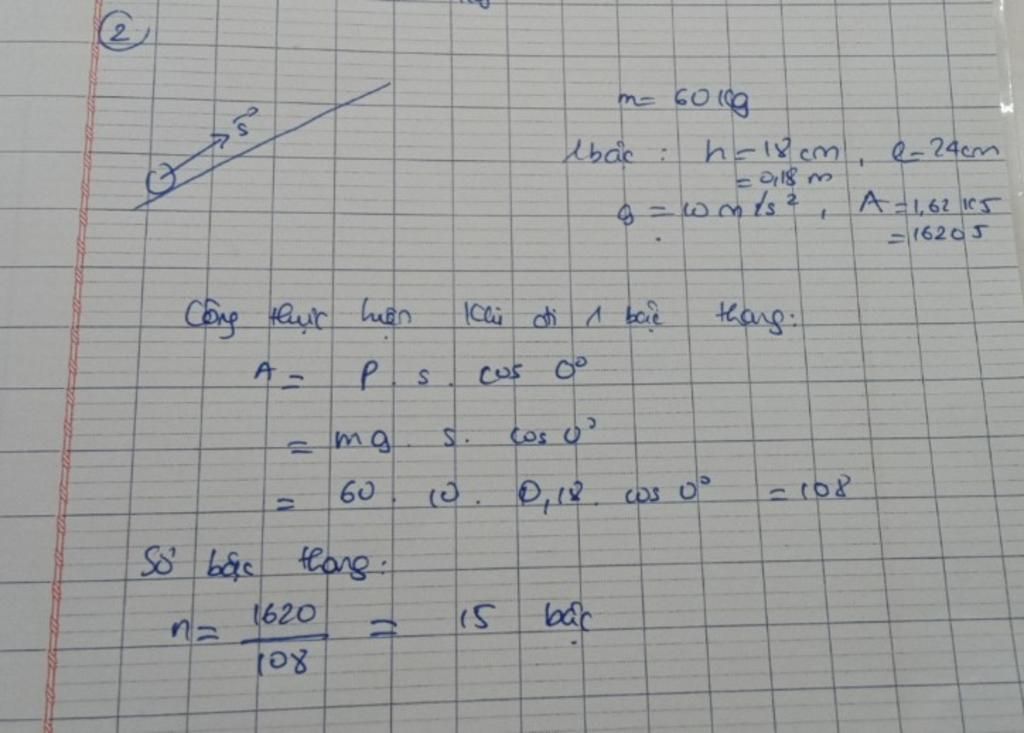 2
s
m = 60 kg
1 bậc : h = 18 cm, l = 24 cm
= 0,18 m
g = 10 m/s², A = 1,62 kJ
= 1620 J
Công thực hiện khi đi 1 bậc thang:
A = P . s . cos 0°
= mg . s . cos 0°
= 60 . 10 . 0,18 . cos 0° = 108
Số bậc thang:
n = 1620 / 108 = 15 bậc